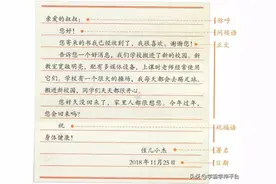 亲爱的叔叔： 称呼
您好！ 问候语
您寄来的书我已经收到了，我很喜欢，谢谢您！ 正文
告诉您一个好消息，我们学校搬进了新的校园。新
教室宽敞明亮，配有多媒体设备，上课时老师经常使用
它们。学校有一个很大的操场，我每天都会去踢足球。
搬进新校园，同学们天天都很开心。
您好久没回来了，家里人都很想您。今年过年，
您会回来吗？
祝 祝福语
身体健康！
侄儿小杰 署名
2018年11月25日 日期
头条@学富滑学师平台